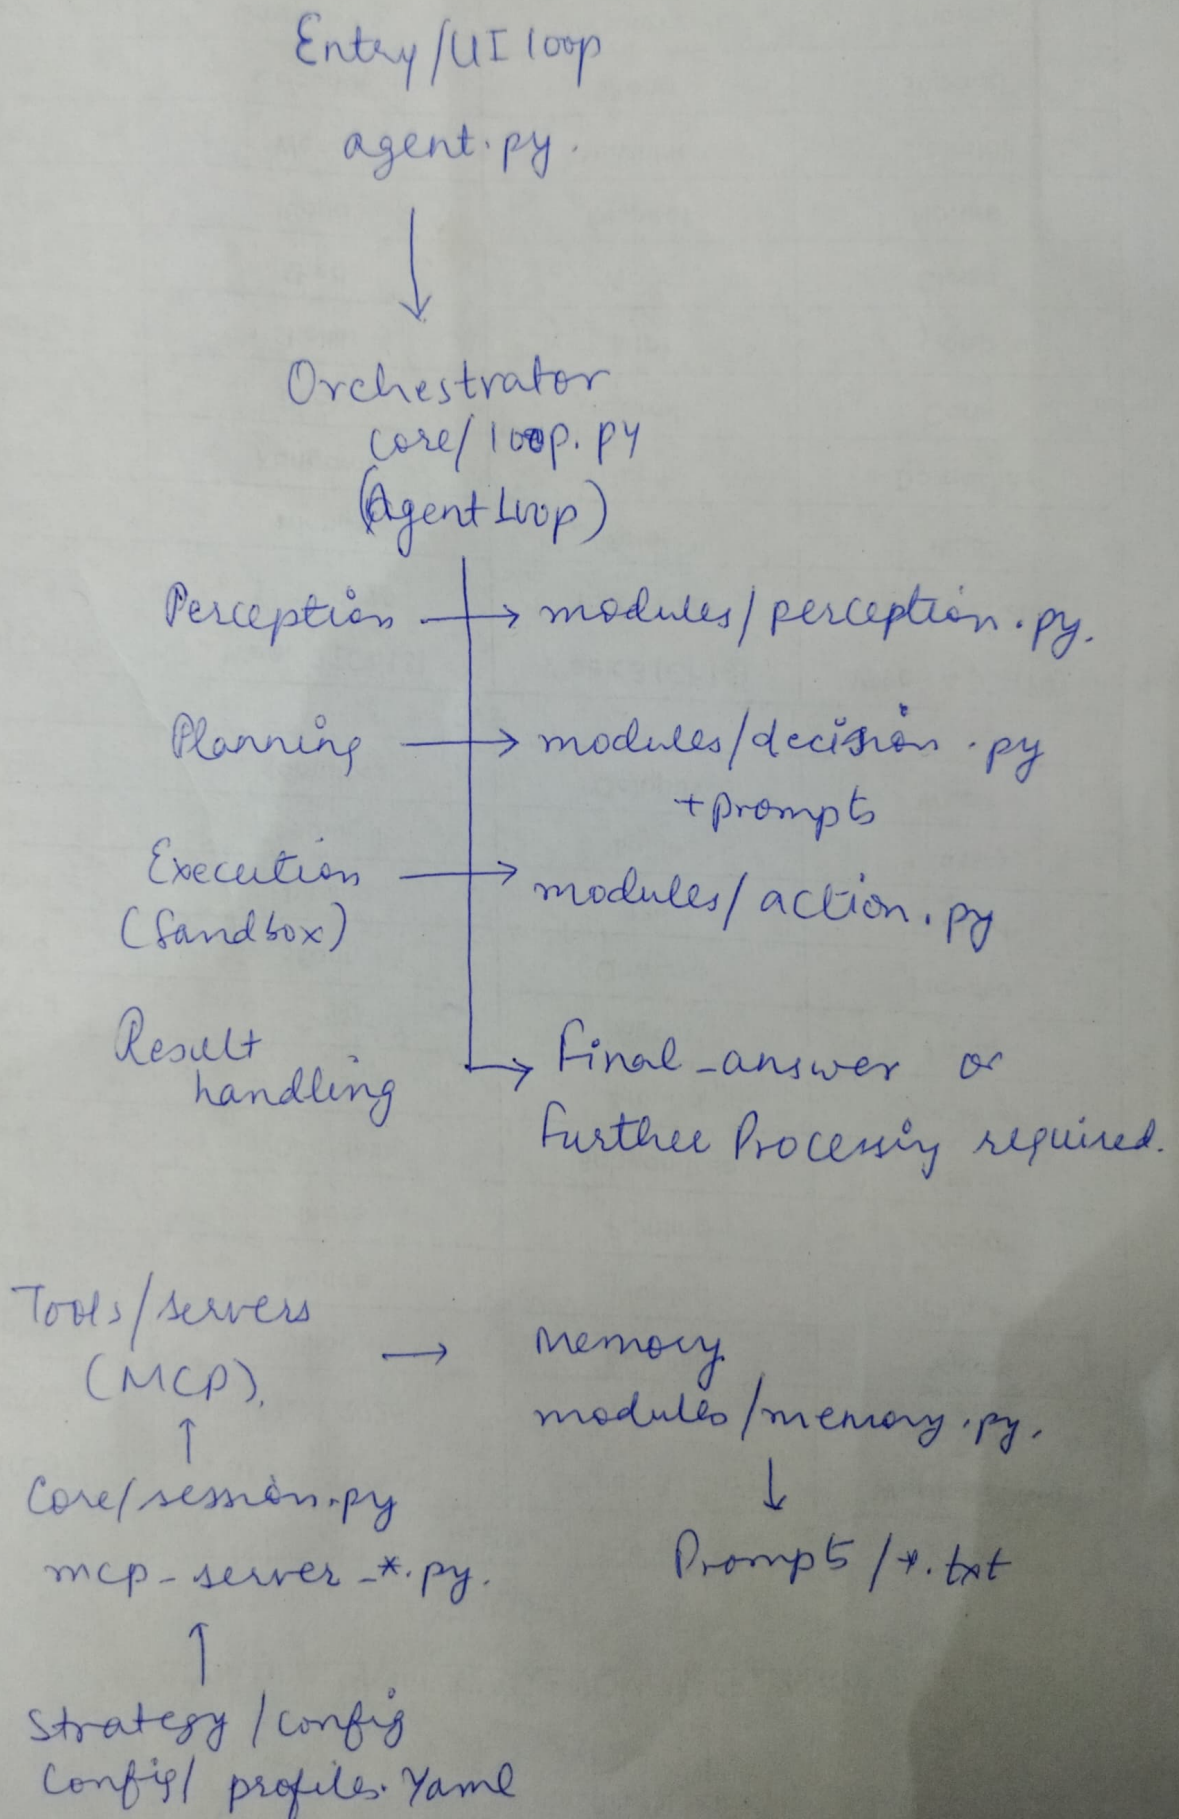 Entry/UI loop
agent.py.
Orchestrator
core/loop.py
(Agent Loop)
Perception → modules/perception.py.
Planning → modules/decision.py
+ prompts
Execution → modules/action.py
(Sandbox)
Result → Final_answer or
handling
Further Processing required.
Tools/servers
(MCP). → Memory
modules/memory.py.
↑
Core/session.py ↓
mcp_server_*.py. Prompts/*.txt
↑
Strategy/config
Config/profiles.yaml